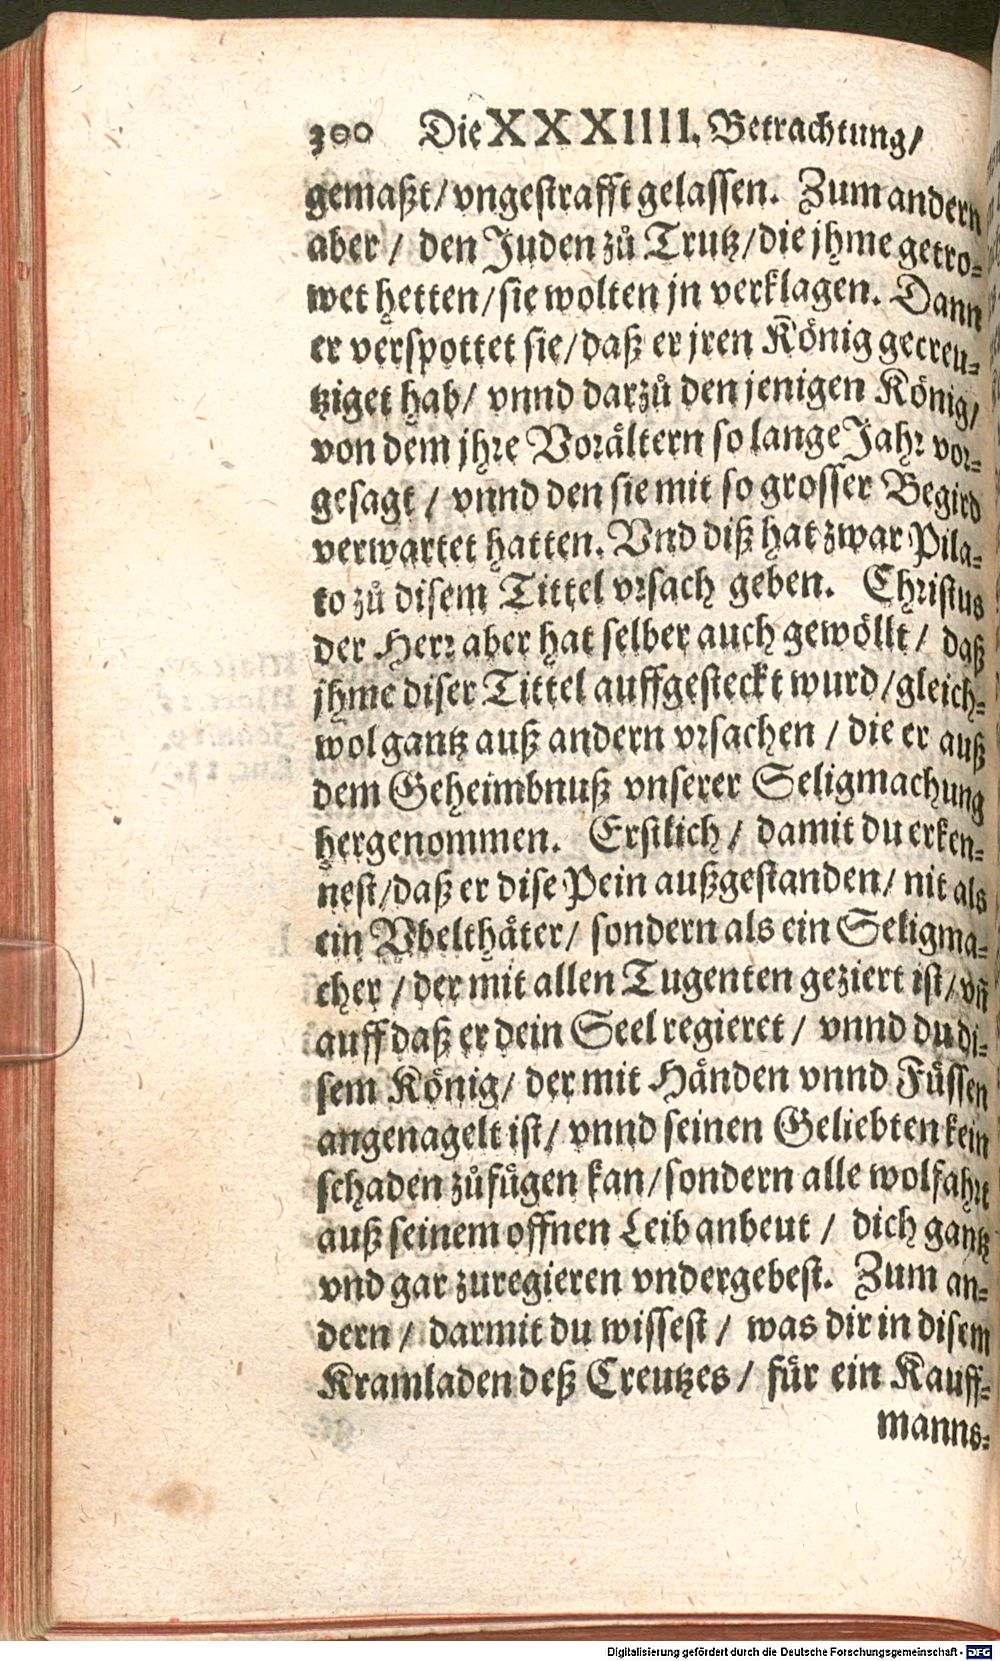 300 Die XXXIIII. Betrachtung/
gemaßt/ vngestrafft gelassen. Zum andern
aber / den Juden zů Trutz/die jhme getro⸗
wet hetten/sie wolten jn verklagen. Dann
er verspottet sie/daß er jren König gecreu⸗
tziget hab/ vnnd darzů den jenigen König/
von dem jhre Vorältern so lange Jahr vor⸗
gesagt / vnnd den sie mit so grosser Begird
verwartet hatten. Vnd diß hat zwar Pila⸗
to zů disem Tittel vrsach geben. Christus
der Herr aber hat selber auch gewöllt / daß
jhme diser Tittel auffgesteckt wurd/gleich⸗
wol gantz auß andern vrsachen / die er auß
dem Geheimbnuß vnserer Seligmachung
hergenommen. Erstlich / damit du erken⸗
nest/daß er dise Pein außgestanden/ nit als
ein Vbelthäter/ sondern als ein Seligma⸗
cher / der mit allen Tugenten geziert ist/ vñ
auff daß er dein Seel regieret / vnnd du di⸗
sem König/ der mit Händen vnnd Füssen
angenagelt ist/ vnnd seinen Geliebten kein
schaden zůfügen kan/sondern alle wolfahrt
auß seinem offnen Leib anbeut / dich gantz
vnd gar zuregieren vndergebest. Zum an⸗
dern / darmit du wissest / was dir in disem
Kramladen deß Creutzes / für ein Kauff⸗
manns⸗
Digitalisierung gefördert durch die Deutsche Forschungsgemeinschaft - DFG